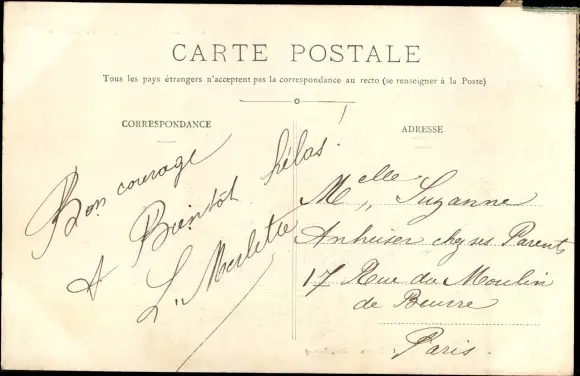 CARTE POSTALE
Tous les pays étrangers n'acceptent pas la correspondance au recto (se renseigner à la Poste)
CORRESPONDANCE
ADRESSE
Bon courage
A Bientôt hélas!
L. Merlette
Melle Suzanne
Anheiser chez ses Parents
17 Rue du Moulin
de Beurre
Paris.